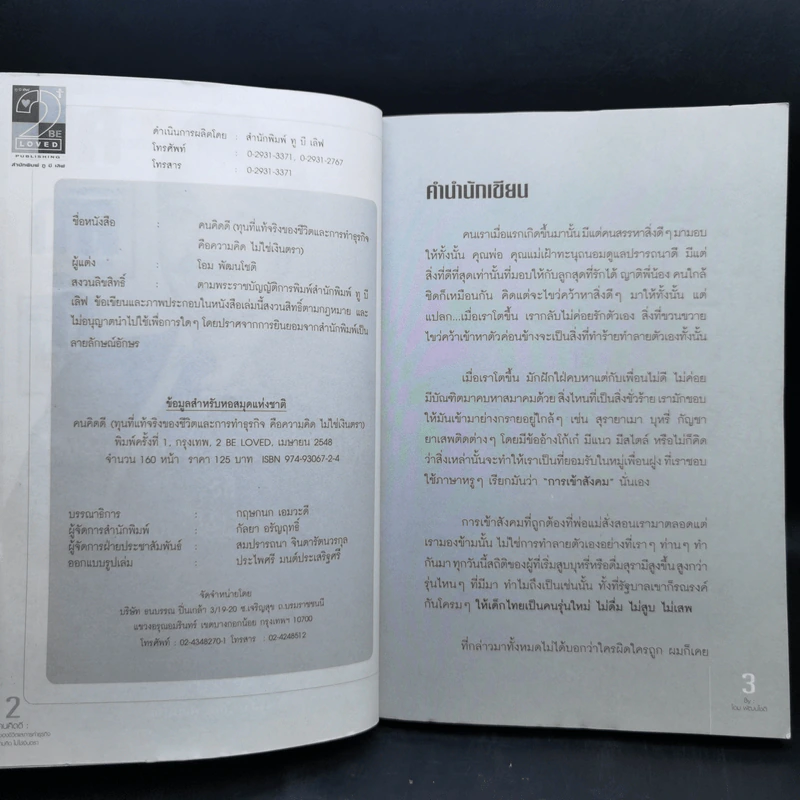 2
BE
LOVED
PUBLISHING
สำนักพิมพ์ ทู บี เลิฟ
ดำเนินการผลิตโดย : สำนักพิมพ์ ทู บี เลิฟ
โทรศัพท์ : 0-2931-3371, 0-2931-2767
โทรสาร : 0-2931-3371
ชื่อหนังสือ : คนคิดดี (ทุนที่แท้จริงของชีวิตและการทำธุรกิจ
คือความคิด ไม่ใช่เงินตรา)
ผู้แต่ง : โอม พัฒนโชติ
สงวนลิขสิทธิ์ : ตามพระราชบัญญัติการพิมพ์สำนักพิมพ์ ทู บี
เลิฟ ข้อเขียนและภาพประกอบในหนังสือเล่มนี้สงวนสิทธิ์ตามกฎหมาย และ
ไม่อนุญาตนำไปใช้เพื่อการใดๆ โดยปราศจากการยินยอมจากสำนักพิมพ์เป็น
ลายลักษณ์อักษร
ข้อมูลสำหรับหอสมุดแห่งชาติ
คนคิดดี (ทุนที่แท้จริงของชีวิตและการทำธุรกิจ คือความคิด ไม่ใช่เงินตรา)
พิมพ์ครั้งที่ 1, กรุงเทพ, 2 BE LOVED, เมษายน 2548
จำนวน 160 หน้า ราคา 125 บาท ISBN 974-93067-2-4
บรรณาธิการ : กฤษกนก เอมวะดี
ผู้จัดการสำนักพิมพ์ : กัลยา อรัญฤทธิ์
ผู้จัดการฝ่ายประชาสัมพันธ์ : สมปรารถนา จินดารัตนวรกุล
ออกแบบรูปเล่ม : ประไพศรี มนต์ประเสริฐศรี
จัดจำหน่ายโดย
บริษัท ธนบรรณ ปิ่นเกล้า 3/19-20 ซ.เจริญสุข ถ.บรมราชชนนี
แขวงอรุณอมรินทร์ เขตบางกอกน้อย กรุงเทพฯ 10700
โทรศัพท์ : 02-4348270-1 โทรสาร : 02-4248512
2
คนคิดดี :
คำนำนักเขียน
คนเราเมื่อแรกเกิดขึ้นมานั้น มีแต่คนสรรหาสิ่งดีๆ มามอบ
ให้ทั้งนั้น คุณพ่อ คุณแม่เฝ้าทะนุถนอมดูแลปรารถนาดี มีแต่
สิ่งที่ดีที่สุดเท่านั้นที่มอบให้กับลูกสุดที่รักได้ ญาติพี่น้อง คนใกล้
ชิดก็เหมือนกัน คิดแต่จะไขว่คว้าหาสิ่งดีๆ มาให้ทั้งนั้น แต่
แปลก...เมื่อเราโตขึ้น เรากลับไม่ค่อยรักตัวเอง สิ่งที่ขวนขวาย
ไขว่คว้าเข้าหาตัวค่อนข้างจะเป็นสิ่งที่ทำร้ายทำลายตัวเองทั้งนั้น
เมื่อเราโตขึ้น มักฝักใฝ่คบหาแต่กับเพื่อนไม่ดี ไม่ค่อย
มีบัณฑิตมาคบหาสมาคมด้วย สิ่งไหนที่เป็นสิ่งชั่วร้าย เรามักชอบ
ให้มันเข้ามาย่างกรายอยู่ใกล้ๆ เช่น สุรายาเมา บุหรี่ กัญชา
ยาเสพติดต่างๆ โดยมีข้ออ้างโก้เก๋ มีแนว มีสไตล์ หรือไม่ก็คิด
ว่าสิ่งเหล่านั้นจะทำให้เราเป็นที่ยอมรับในหมู่เพื่อนฝูง ที่เราชอบ
ใช้ภาษาหรูๆ เรียกมันว่า "การเข้าสังคม" นั่นเอง
การเข้าสังคมที่ถูกต้องที่พ่อแม่สั่งสอนเรามาตลอดแต่
เรามองข้ามนั้น ไม่ใช่การทำลายตัวเองอย่างที่เราๆ ท่านๆ ทำ
กันมา ทุกวันนี้สถิติของผู้ที่เริ่มสูบบุหรี่หรือดื่มสุรามีสูงขึ้น สูงกว่า
รุ่นไหนๆ ที่มีมา ทำไมถึงเป็นเช่นนั้น ทั้งที่รัฐบาลเขาก็รณรงค์
กันโครมๆ ให้เด็กไทยเป็นคนรุ่นใหม่ ไม่ดื่ม ไม่สูบ ไม่เสพ
ที่กล่าวมาทั้งหมดไม่ได้บอกว่าใครผิดใครถูก ผมก็เคย
3
By
โอม พัฒนโชติ